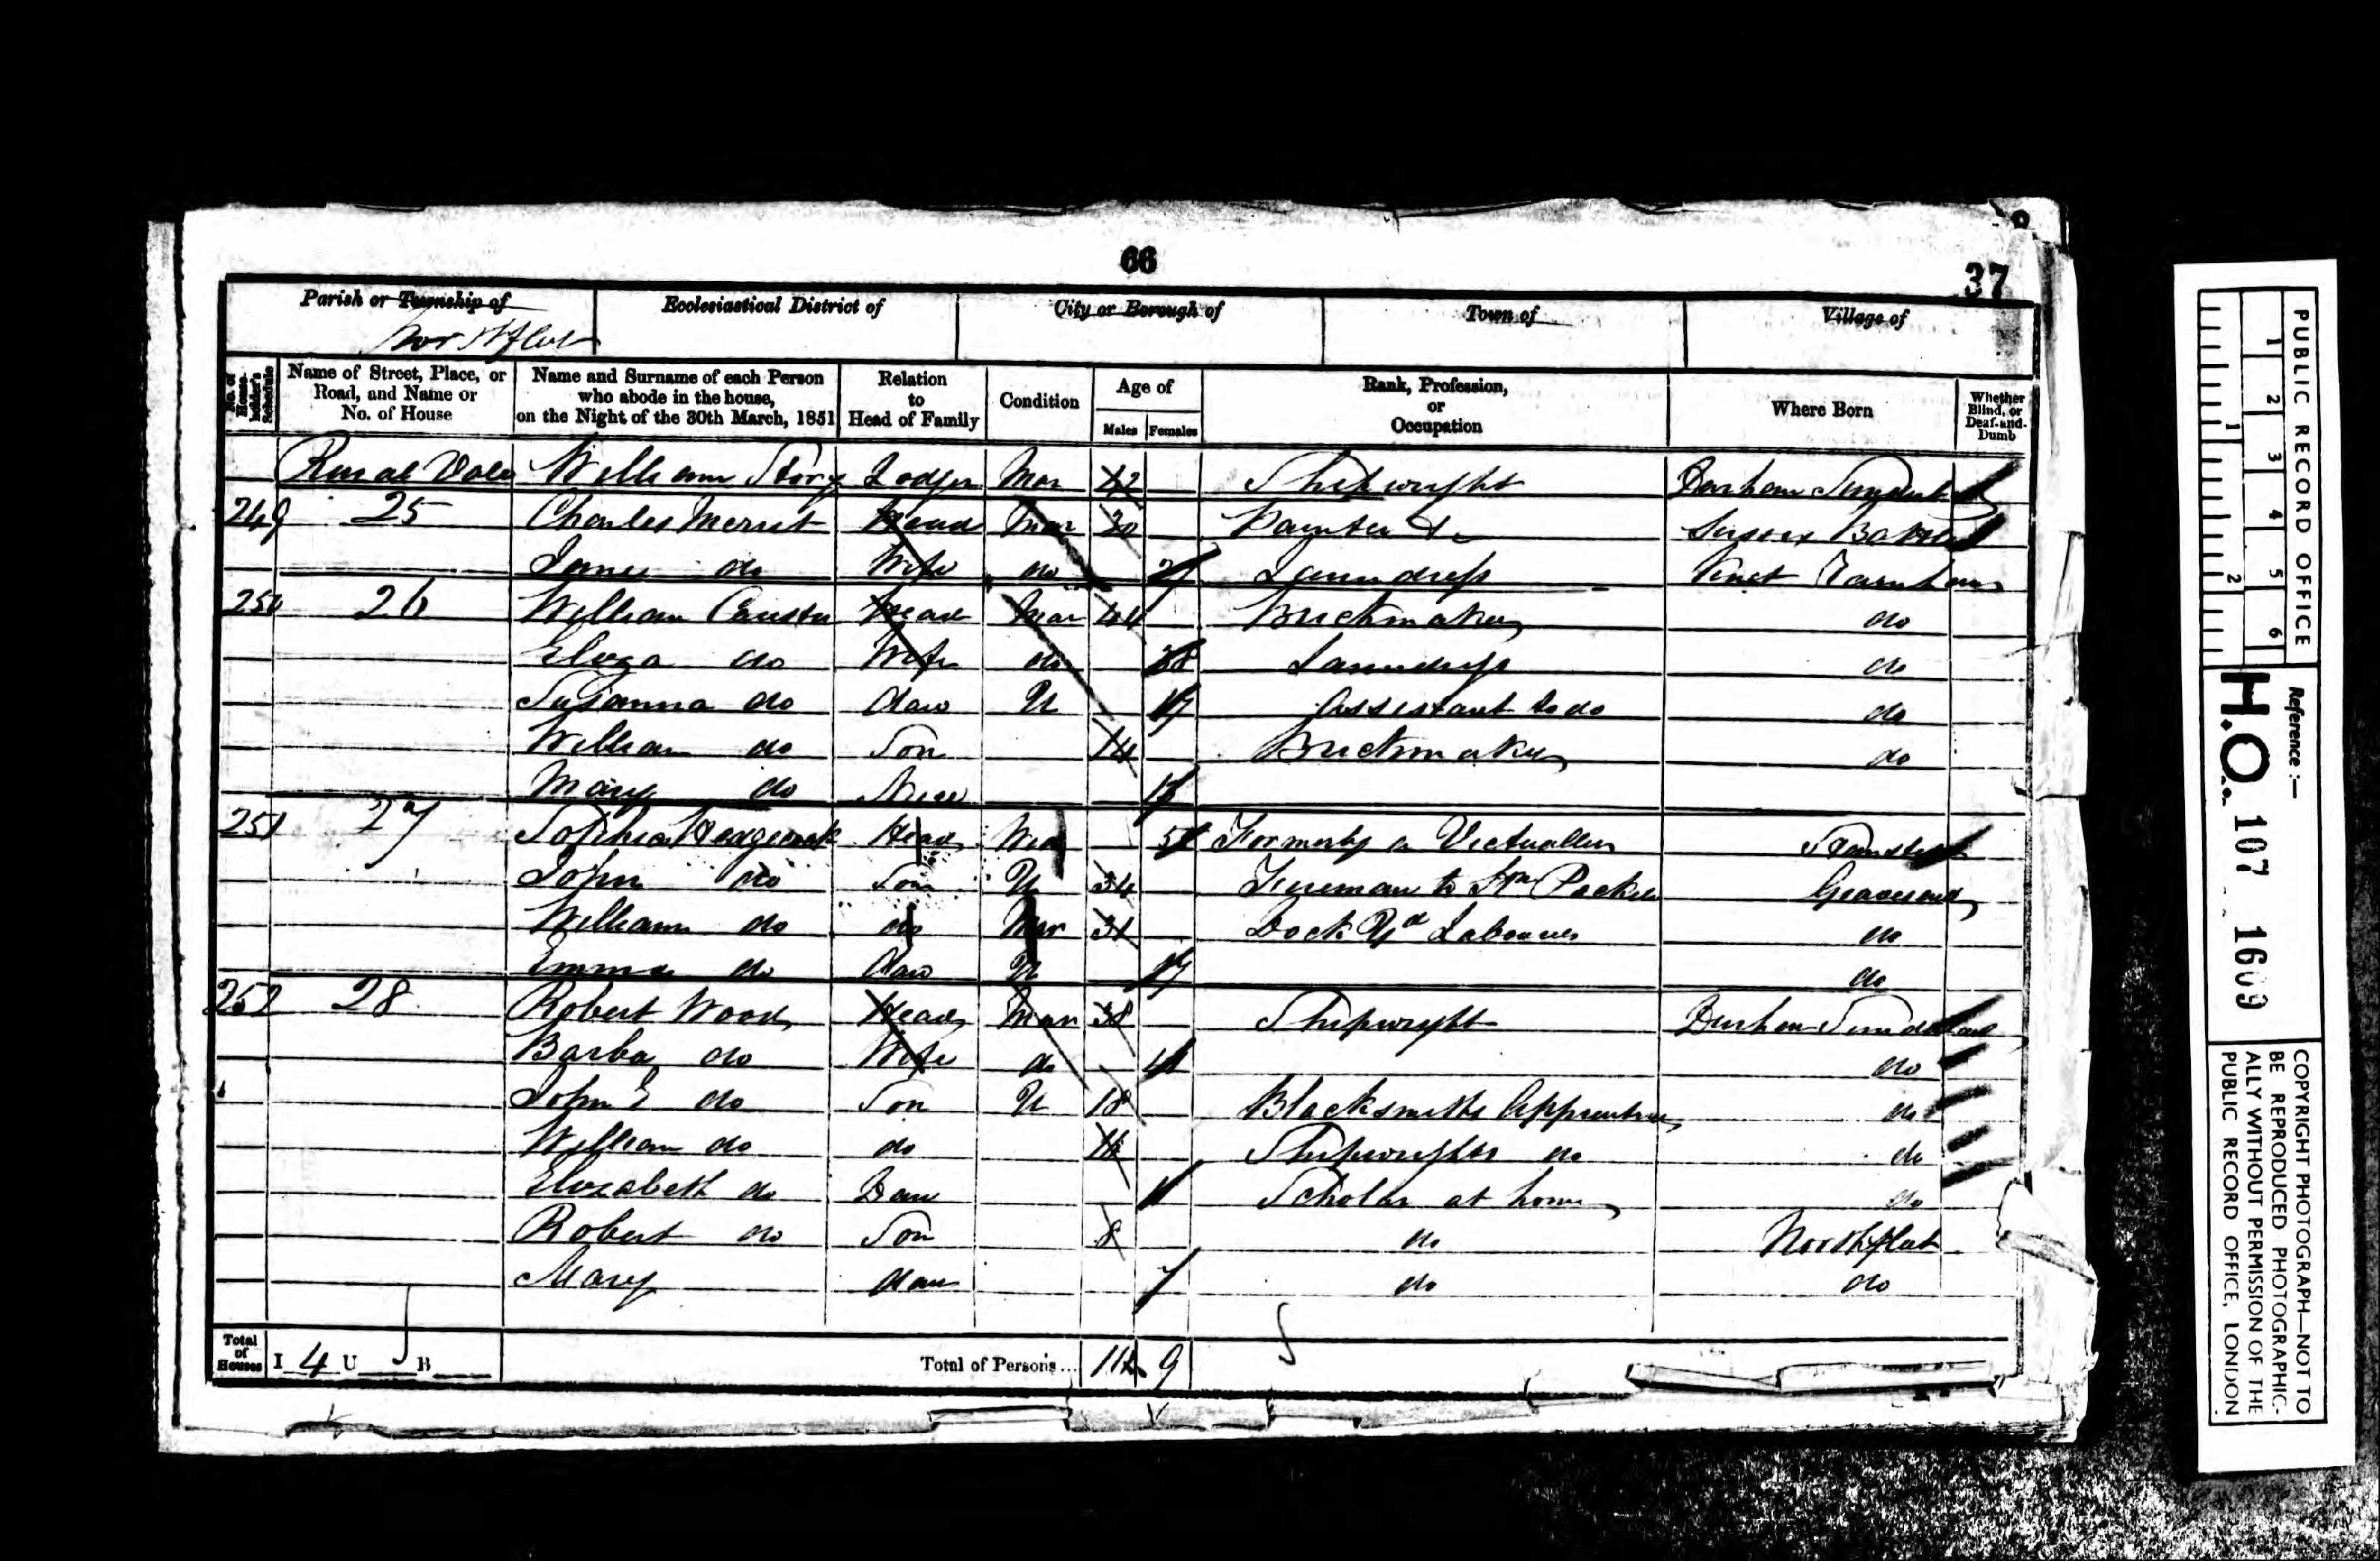 66
37
Parish or Township of
Northfleet
Ecclesiastical District of
City or Borough of
Town of
Village of
No. of House-holder's Schedule
Name of Street, Place, or Road, and Name or No. of House
Name and Surname of each Person who abode in the house, on the Night of the 30th March, 1851
Relation to Head of Family
Condition
Age of
Males
Females
Rank, Profession, or Occupation
Where Born
Whether Blind, or Deaf-and-Dumb
William Story Lodger Mar 42 Shipwright Durham
249 25 Charles Merrit Head Mar 30 Painter Sussex
do Wife do Laundress Kent
250 26 William Head Mar 44 Brickmaker do
Eliza do Wife do 38 Laundress do
Susanna do daur U 17 Assistant to do do
William do Son 14 Brickmaker do
Mary do Niece
251 27 Sophia Head Wid Formerly a Victualler
John do Son U 34 to Stm Gravesend
William do do Mar 31 Dock Yd Labourer do
Emma do daur U do
252 28 Robert Wood Head Mar 38 Shipwright Durham Sunderland
Barba do Wife do do
John E do Son U 18 Blacksmiths Apprentice do
William do do Shipwrights do do
Elizabeth do Daur 11 Scholar at home do
Robert do Son 8 do Northfleet
Mary daur 7 do do
Total of Houses
I 4 U B
Total of Persons... 9
PUBLIC RECORD OFFICE
1 2 3 4 5 6
1 2
Reference :-
H.O. 107 1609
COPYRIGHT PHOTOGRAPH—NOT TO
BE REPRODUCED PHOTOGRAPHIC-
ALLY WITHOUT PERMISSION OF THE
PUBLIC RECORD OFFICE, LONDON